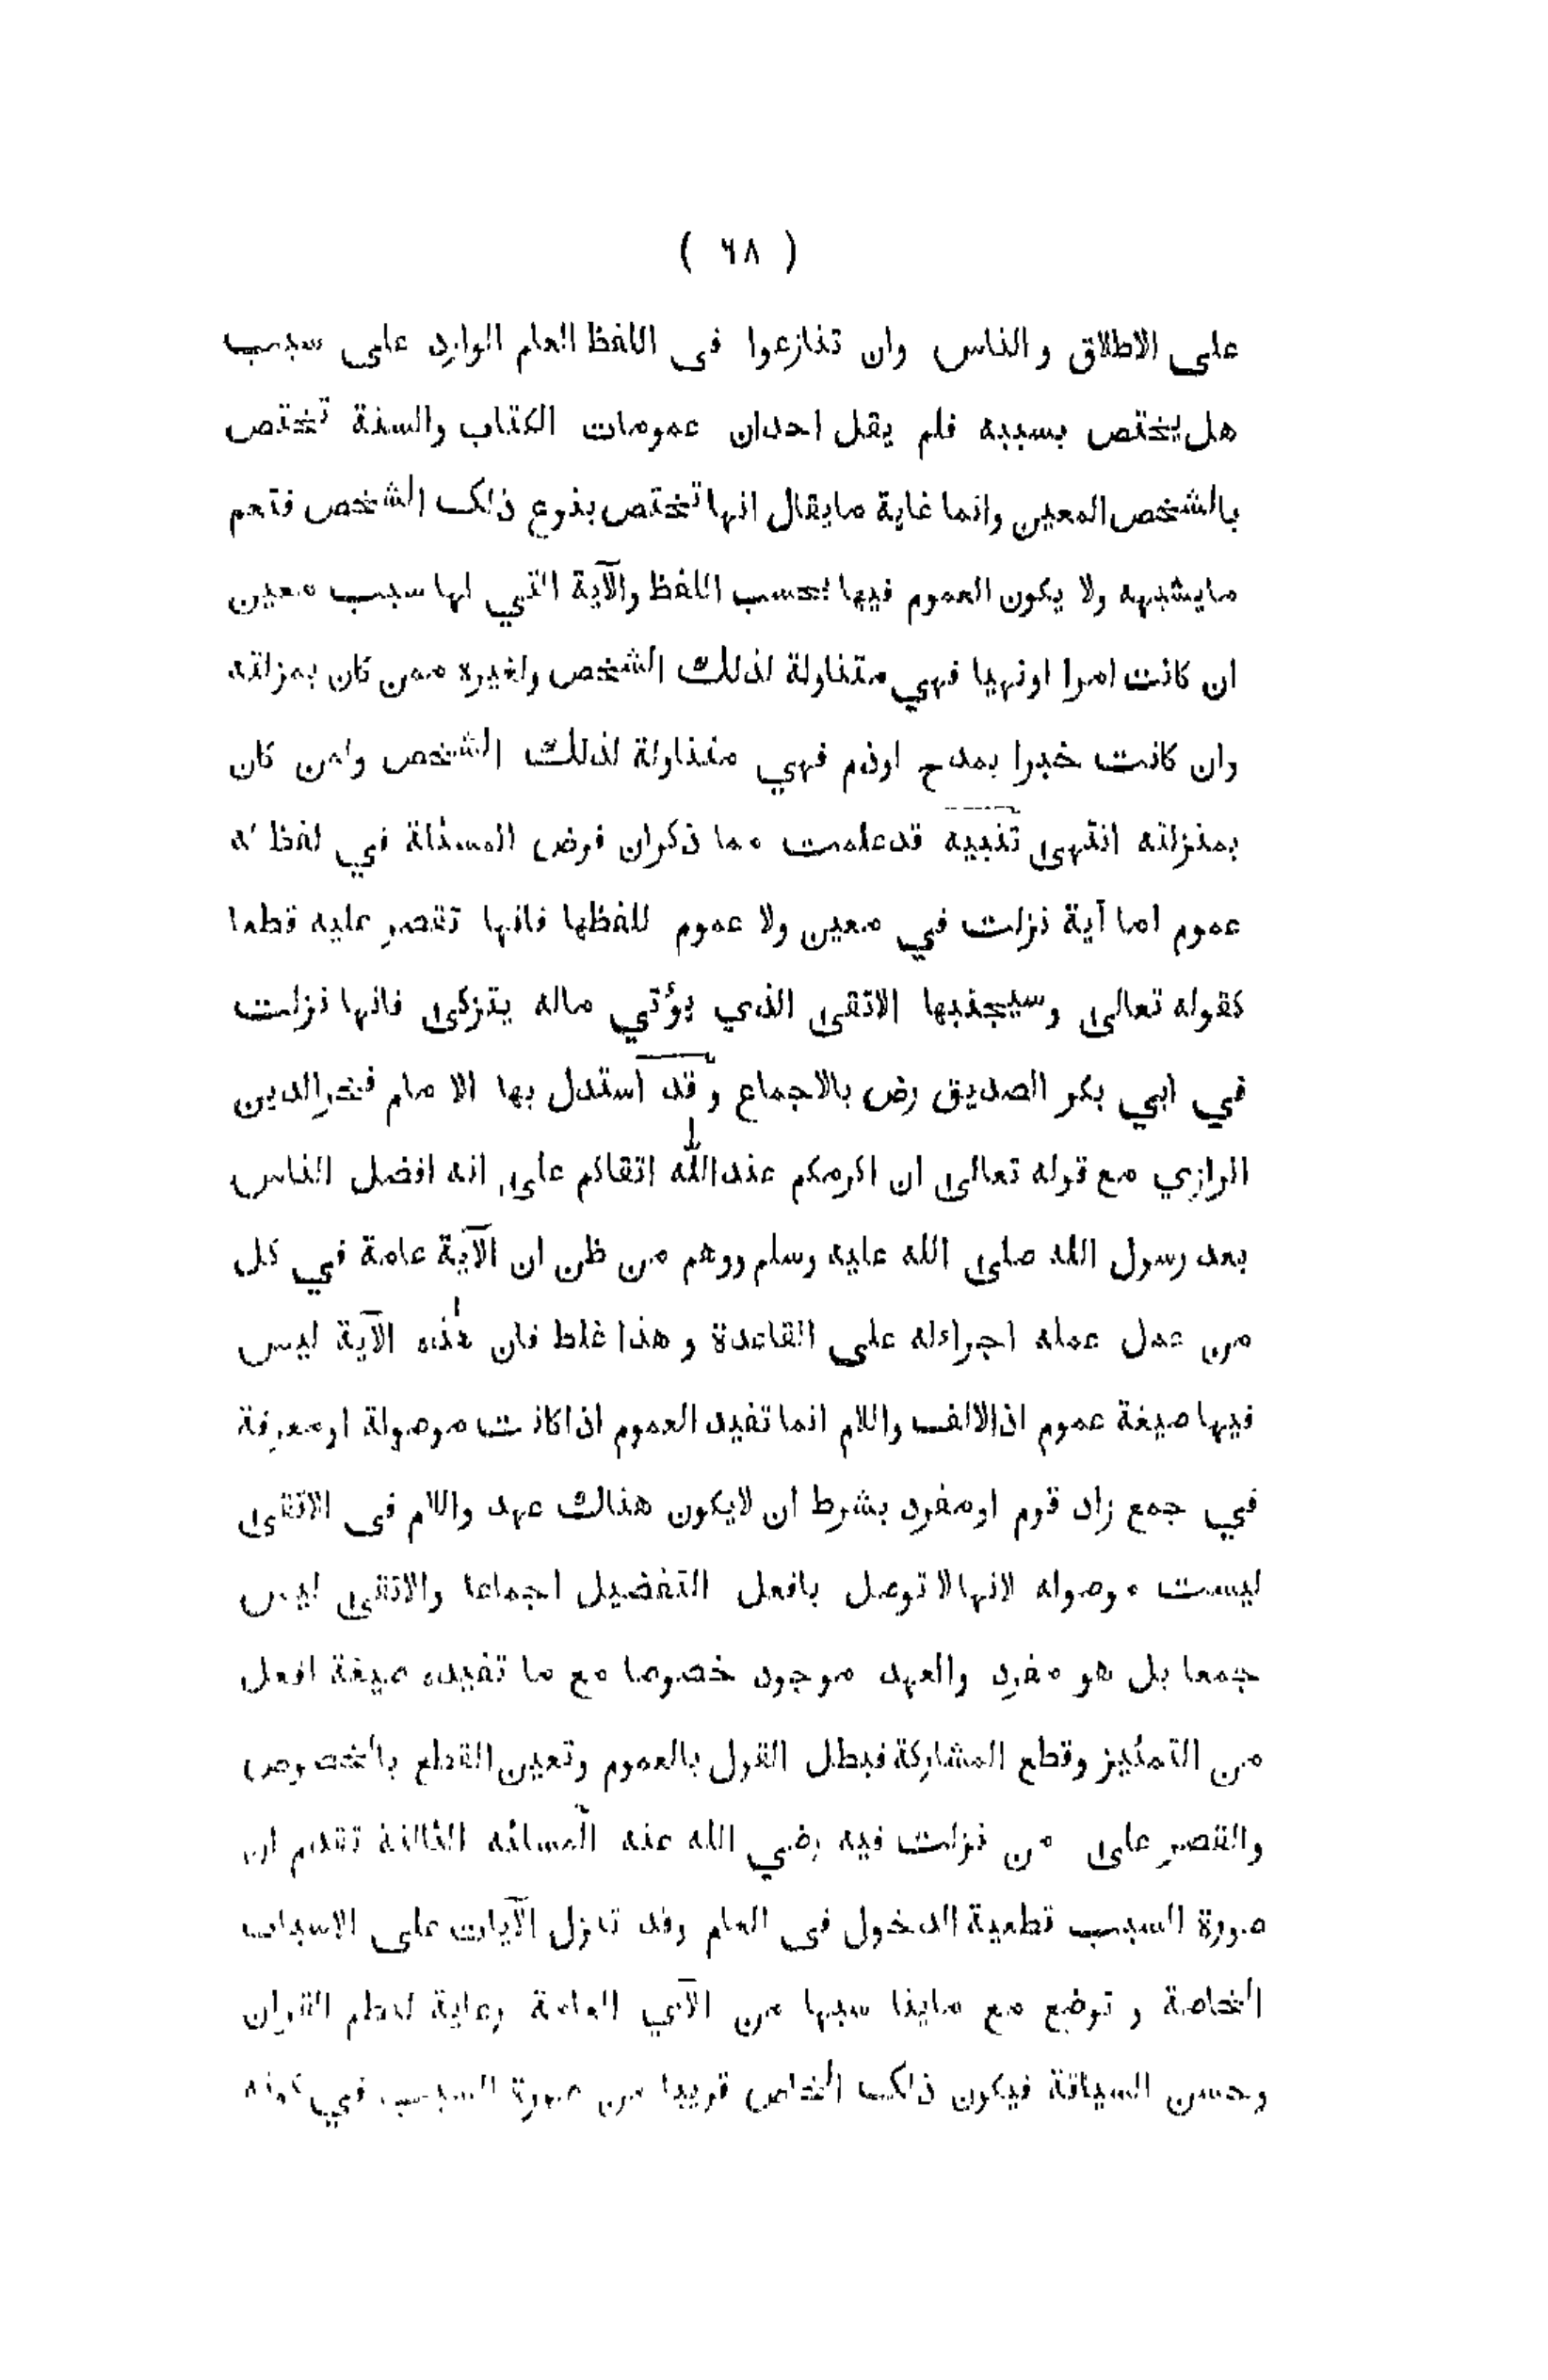 ( ٦٨ )
على الاطلاق والناس وان تنازعوا فى اللفظ العام الوارد على سبب
هل يختص بسببه فلم يقل احدان عمومات الكتاب والسنة تختص
بالشخص المعين وانما غاية مايقال انها تختص بنوع ذلك الشخص فتعم
مايشبهه ولا يكون العموم فيها بحسب اللفظ والآية التي لها سبب معين
ان كانت امرا اونهيا فهي متناولة لذلك الشخص ولغيره ممن كان بمنزلته
وان كانت خبرا بمدح اوذم فهي متناولة لذلك الشخص ولمن كان
بمنزلته انتهى تنبيه قدعلمت مما ذكران فرض المسئلة في لفظ له
عموم اما آية نزلت في معين ولا عموم للفظها فانها تقصر عليه قطعا
كقوله تعالى وسيجنبها الاتقى الذي يؤتي ماله يتزكى فانها نزلت
في ابي بكر الصديق رض بالاجماع وقد استدل بها الا مام فخرالدين
الرازي مع قوله تعالى ان اكرمكم عندالله اتقاكم على انه افضل الناس
بعد رسول الله صلى الله عليه وسلم ووهم من ظن ان الآية عامة في كل
من عمل عمله اجراءله على القاعدة وهذا غلط فان هذه الآية ليس
فيها صيغة عموم اذالالف واللام انما تفيد العموم اذاكانت موصولة اومعرفة
في جمع زاد قوم اومفرد بشرط ان لايكون هنالك عهد واللام فى الاتقى
ليست موصوله لانهالا توصل بافعل التفضيل اجماعا والاتقى ليس
جمعا بل هو مفرد والعهد موجود خصوصا مع ما تفيده صيغة افعل
من التمئيز وقطع المشاركة فبطل القول بالعموم وتعين القطع بالخصوص
والقصر على من نزلت فيه رضي الله عنه المسائه الثالثة تقدم ان
صورة السبب قطعية الدخول فى العام وقد تنزل الآيات على الاسباب
الخاصة و توضع مع مايذا سبها من الآي العامة رعاية لنظم القران
وحسن السياقة فيكون ذلك الخاص قريبا من صورة السبب في كونه